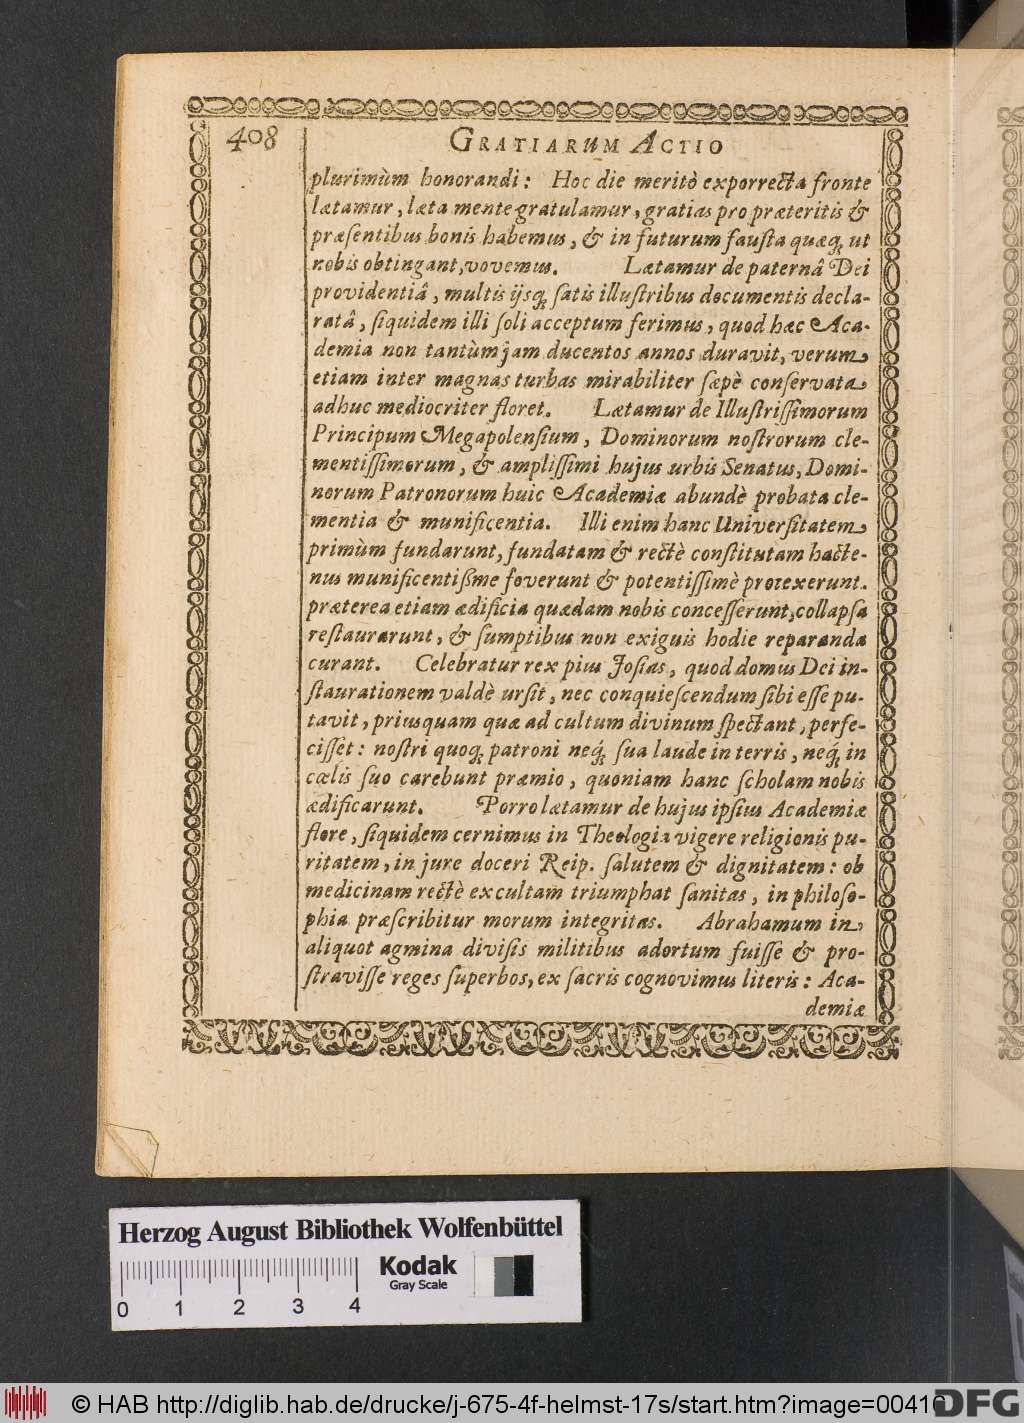 408 GRATIARUM ACTIO
plurimùm honorandi: Hoc die meritò exporrecta fronte
lætamur, læta mente gratulamur, gratias pro præteritis &
præſentibus bonis habemus, & in futurum fauſta quæq; ut
nobis obtingant, vovemus. Lætamur de paternâ Dei
providentiâ, multis ijsq; ſatis illuſtribus documentis decla-
ratâ, ſiquidem illi ſoli acceptum ferimus, quod hæc Aca-
demia non tantùm jam ducentos annos duravit, verum
etiam inter magnas turbas mirabiliter ſæpè conſervata
adhuc mediocriter floret. Lætamur de Illuſtriſſimorum
Principum Megapolenſium, Dominorum noſtrorum cle-
mentiſſimorum, & ampliſſimi hujus urbis Senatus, Domi-
norum Patronorum huic Academiæ abundè probata cle-
mentia & munificentia. Illi enim hanc Univerſitatem
primùm fundarunt, fundatam & rectè conſtitutam hacte-
nus munificentißme foverunt & potentiſſimè protexerunt.
præterea etiam ædificia quædam nobis conceſſerunt, collapſa
reſtaurarunt, & ſumptibus non exiguis hodie reparanda
curant. Celebratur rex pius Joſias, quod domus Dei in-
ſtaurationem valdè urſit, nec conquieſcendum ſibi eſſe pu-
tavit, priusquam quæ ad cultum divinum ſpectant, perfe-
ciſſet: noſtri quoq; patroni neq; ſua laude in terris, neq; in
cœlis ſuo carebunt præmio, quoniam hanc ſcholam nobis
ædificarunt. Porro lætamur de hujus ipſius Academiæ
flore, ſiquidem cernimus in Theologia vigere religionis pu-
ritatem, in jure doceri Reip. ſalutem & dignitatem: ob
medicinam rectè excultam triumphat ſanitas, in philoſo-
phia præſcribitur morum integritas. Abrahamum in
aliquot agmina diviſis militibus adortum fuiſſe & pro-
ſtraviſſe reges ſuperbos, ex ſacris cognovimus literis: Aca-
demiæ
Herzog August Bibliothek Wolfenbüttel
Kodak
Gray Scale
0 1 2 3 4
© HAB http://diglib.hab.de/drucke/j-675-4f-helmst-17s/start.htm?image=00416
DFG